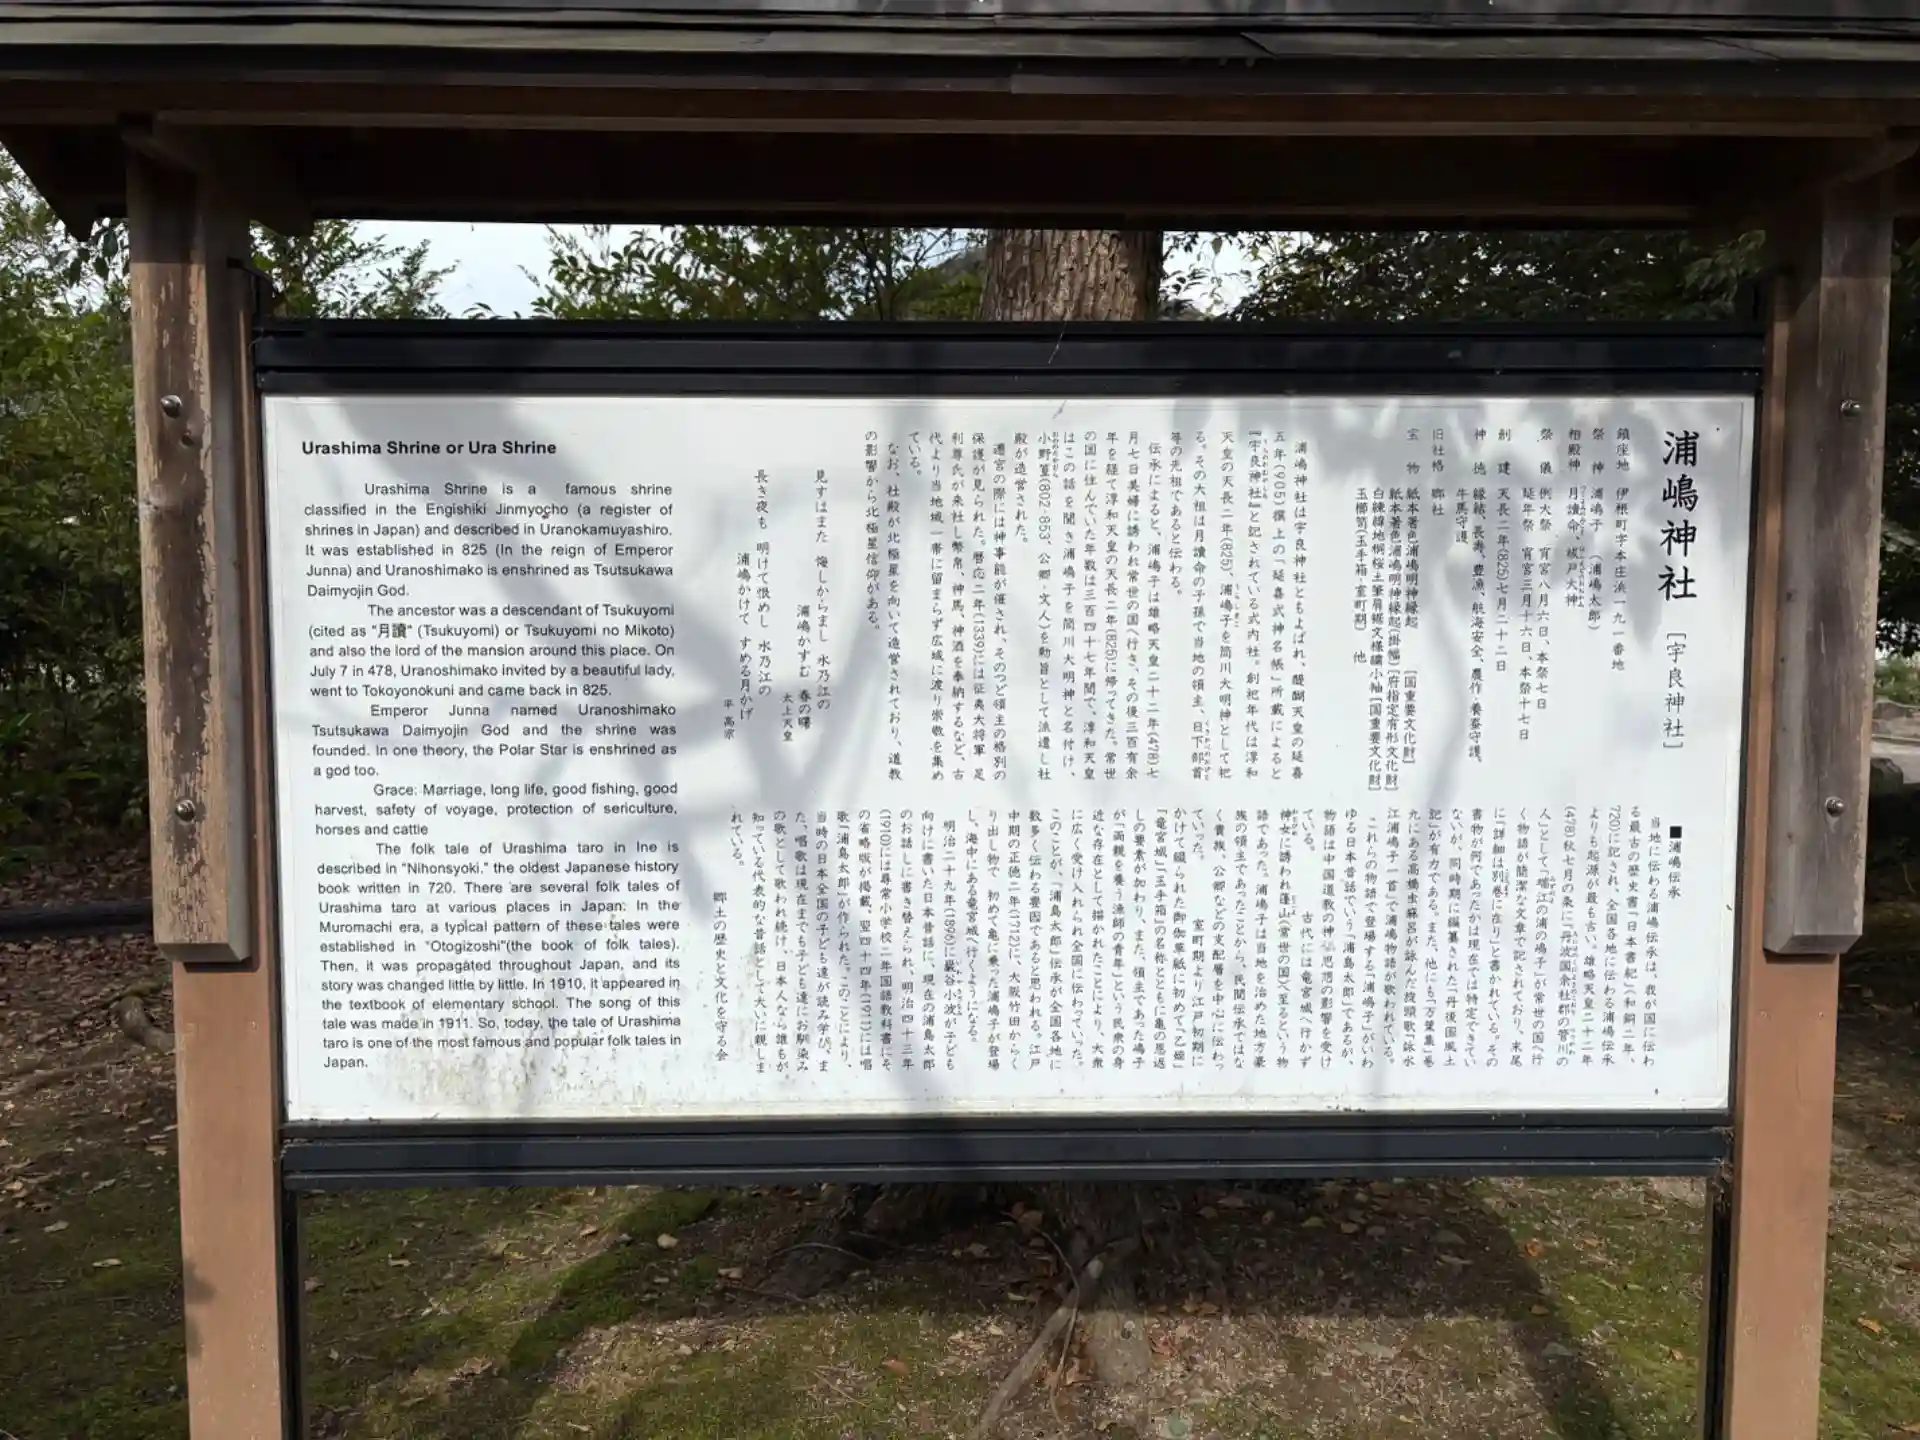 浦嶋神社 [宇良神社]
鎮座地 伊根町字本庄浜一九一番地
祭神 浦嶋子 (浦嶋太郎)
相殿神 月讀命、祓戸大神
祭儀 例大祭 宵宮八月六日、本祭七日
延年祭 宵宮三月十六日、本祭十七日
創建 天長二年(825)七月二十二日
神徳 縁結、長寿、豊漁、航海安全、農作・養蚕守護、
牛馬守護
旧社格 郷社
宝物 紙本著色浦嶋明神縁起 [国重要文化財]
紙本著色浦嶋明神縁起(掛幅)[府指定有形文化財]
白練緯地桐桜土筆肩裾文様繍小袖[国重要文化財]
玉櫛笥(玉手箱・室町期) 他
浦嶋神社は宇良神社ともよばれ、醍醐天皇の延喜
五年(905)撰上の「延喜式神名帳」所載によると
『宇良神社』と記されている式内社。創祀年代は淳和
天皇の天長二年(825)、浦嶋子を筒川大明神として祀
る。その大祖は月讀命の子孫で当地の領主、日下部首
等の先祖であると伝わる。
伝承によると、浦嶋子は雄略天皇二十二年(478)七
月七日美婦に誘われ常世の国へ行き、その後三百有余
年を経て淳和天皇の天長二年(825)に帰ってきた。常世
の国に住んでいた年数は三百四十七年間で、淳和天皇
はこの話を聞き浦嶋子を筒川大明神と名付け、
小野篁(802-853、公卿・文人)を勅旨として派遣し社
殿が造営された。
遷宮の際には神事能が催され、そのつど領主の格別の
保護が見られた。暦応二年(1339)には征夷大将軍 足
利尊氏が来社し幣帛、神馬、神酒を奉納するなど、古
代より当地域一帯に留まらず広域に渡り崇敬を集め
ている。
なお、社殿が北極星を向いて造営されており、道教
の影響から北極星信仰がある。
見すはまた 悔しからまし 水乃江の
浦嶋かすむ 春の曙
太上天皇
長き夜も 明けて恨めし 水乃江の
浦嶋かけて すめる月かげ
平 高宗
■浦嶋伝承
当地に伝わる浦嶋伝承は、我が国に伝わ
る最古の歴史書「日本書紀」(和銅二年、
720)に記され、全国各地に伝わる浦嶋伝承
よりも起源が最も古い。雄略天皇二十二年
(478)秋七月の条に「丹波国余社郡の管川の
人」として「瑞江の浦の嶋子」が常世の国へ行
く物語が簡潔な文章で記されており、末尾
に「詳細は別巻に在り」と書かれている。その
書物が何であったかは現在では特定できてい
ないが、同時期に編纂された「丹後国風土
記」が有力である。また、他にも「万葉集」巻
九にある高橋虫麻呂が詠んだ掟頭歌「詠水
江浦嶋子一首」で浦嶋物語が歌われている。
これらの物語で登場する「浦嶋子」がいわ
ゆる日本昔話でいう「浦島太郎」であるが、
物語は中国道教の神仙思想の影響を受け
ている。 古代には竜宮城へ行かず
神女に誘われ蓬山(常世の国)へ至るという物
語であった。浦嶋子は当地を治めた地方豪
族の領主であったことから、民間伝承ではな
く貴族、公卿などの支配層を中心に伝わっ
ていった。 室町期より江戸初期に
かけて綴られた御伽草紙に初めて「乙姫」
「竜宮城」「玉手箱の名称とともに亀の恩返
しの要素が加わり、また、領主であった嶋子
が「両親を養う漁師の青年」という民衆の身
近な存在として描かれたことにより、大衆
に広く受け入れられ全国に伝わっていった。
このことが、「浦島太郎」伝承が全国各地に
数多く伝わる要因であると思われる。江戸
中期の正徳二年(1712)に、大阪竹田からく
り出し物で 初めて亀に乗った浦嶋子が登場
し、海中にある竜宮城へ行くようになる。
明治二十九年(1896)に巌谷小波が子ども
向けに書いた日本昔話に、現在の浦島太郎
のお話しに書き替えられ、明治四十三年
(1910)には尋常小学校二年国語教科書にそ
の省略版が掲載、翌四十四年(1911)には唱
歌「浦島太郎」が作られた。このことにより、
当時の日本全国の子ども達が読み学び、ま
た、唱歌は現在までも子ども達にお馴染み
の歌として歌われ続け、日本人なら誰もが
知っている代表的な昔話として大いに親しま
れている。
郷土の歴史と文化を守る会
Urashima Shrine or Ura Shrine
Urashima Shrine is a famous shrine
classified in the Engishiki Jinmyocho (a register of
shrines in Japan) and described in Uranokamuyashiro.
It was established in 825 (In the reign of Emperor
Junna) and Uranoshimako is enshrined as Tsutsukawa
Daimyojin God.
The ancestor was a descendant of Tsukuyomi
(cited as "月讀" (Tsukuyomi) or Tsukuyomi no Mikoto)
and also the lord of the mansion around this place. On
July 7 in 478, Uranoshimako invited by a beautiful lady,
went to Tokoyonokuni and came back in 825.
Emperor Junna named Uranoshimako
Tsutsukawa Daimyojin God and the shrine was
founded. In one theory, the Polar Star is enshrined as
a god too.
Grace: Marriage, long life, good fishing, good
harvest, safety of voyage, protection of sericulture,
horses and cattle
The folk tale of Urashima taro in Ine is
described in "Nihonsyoki," the oldest Japanese history
book written in 720. There are several folk tales of
Urashima taro at various places in Japan. In the
Muromachi era, a typical pattern of these tales were
established in "Otogizoshi"(the book of folk tales).
Then, it was propagated throughout Japan, and its
story was changed little by little. In 1910, it appeared in
the textbook of elementary school. The song of this
tale was made in 1911. So, today, the tale of Urashima
taro is one of the most famous and popular folk tales in
Japan.